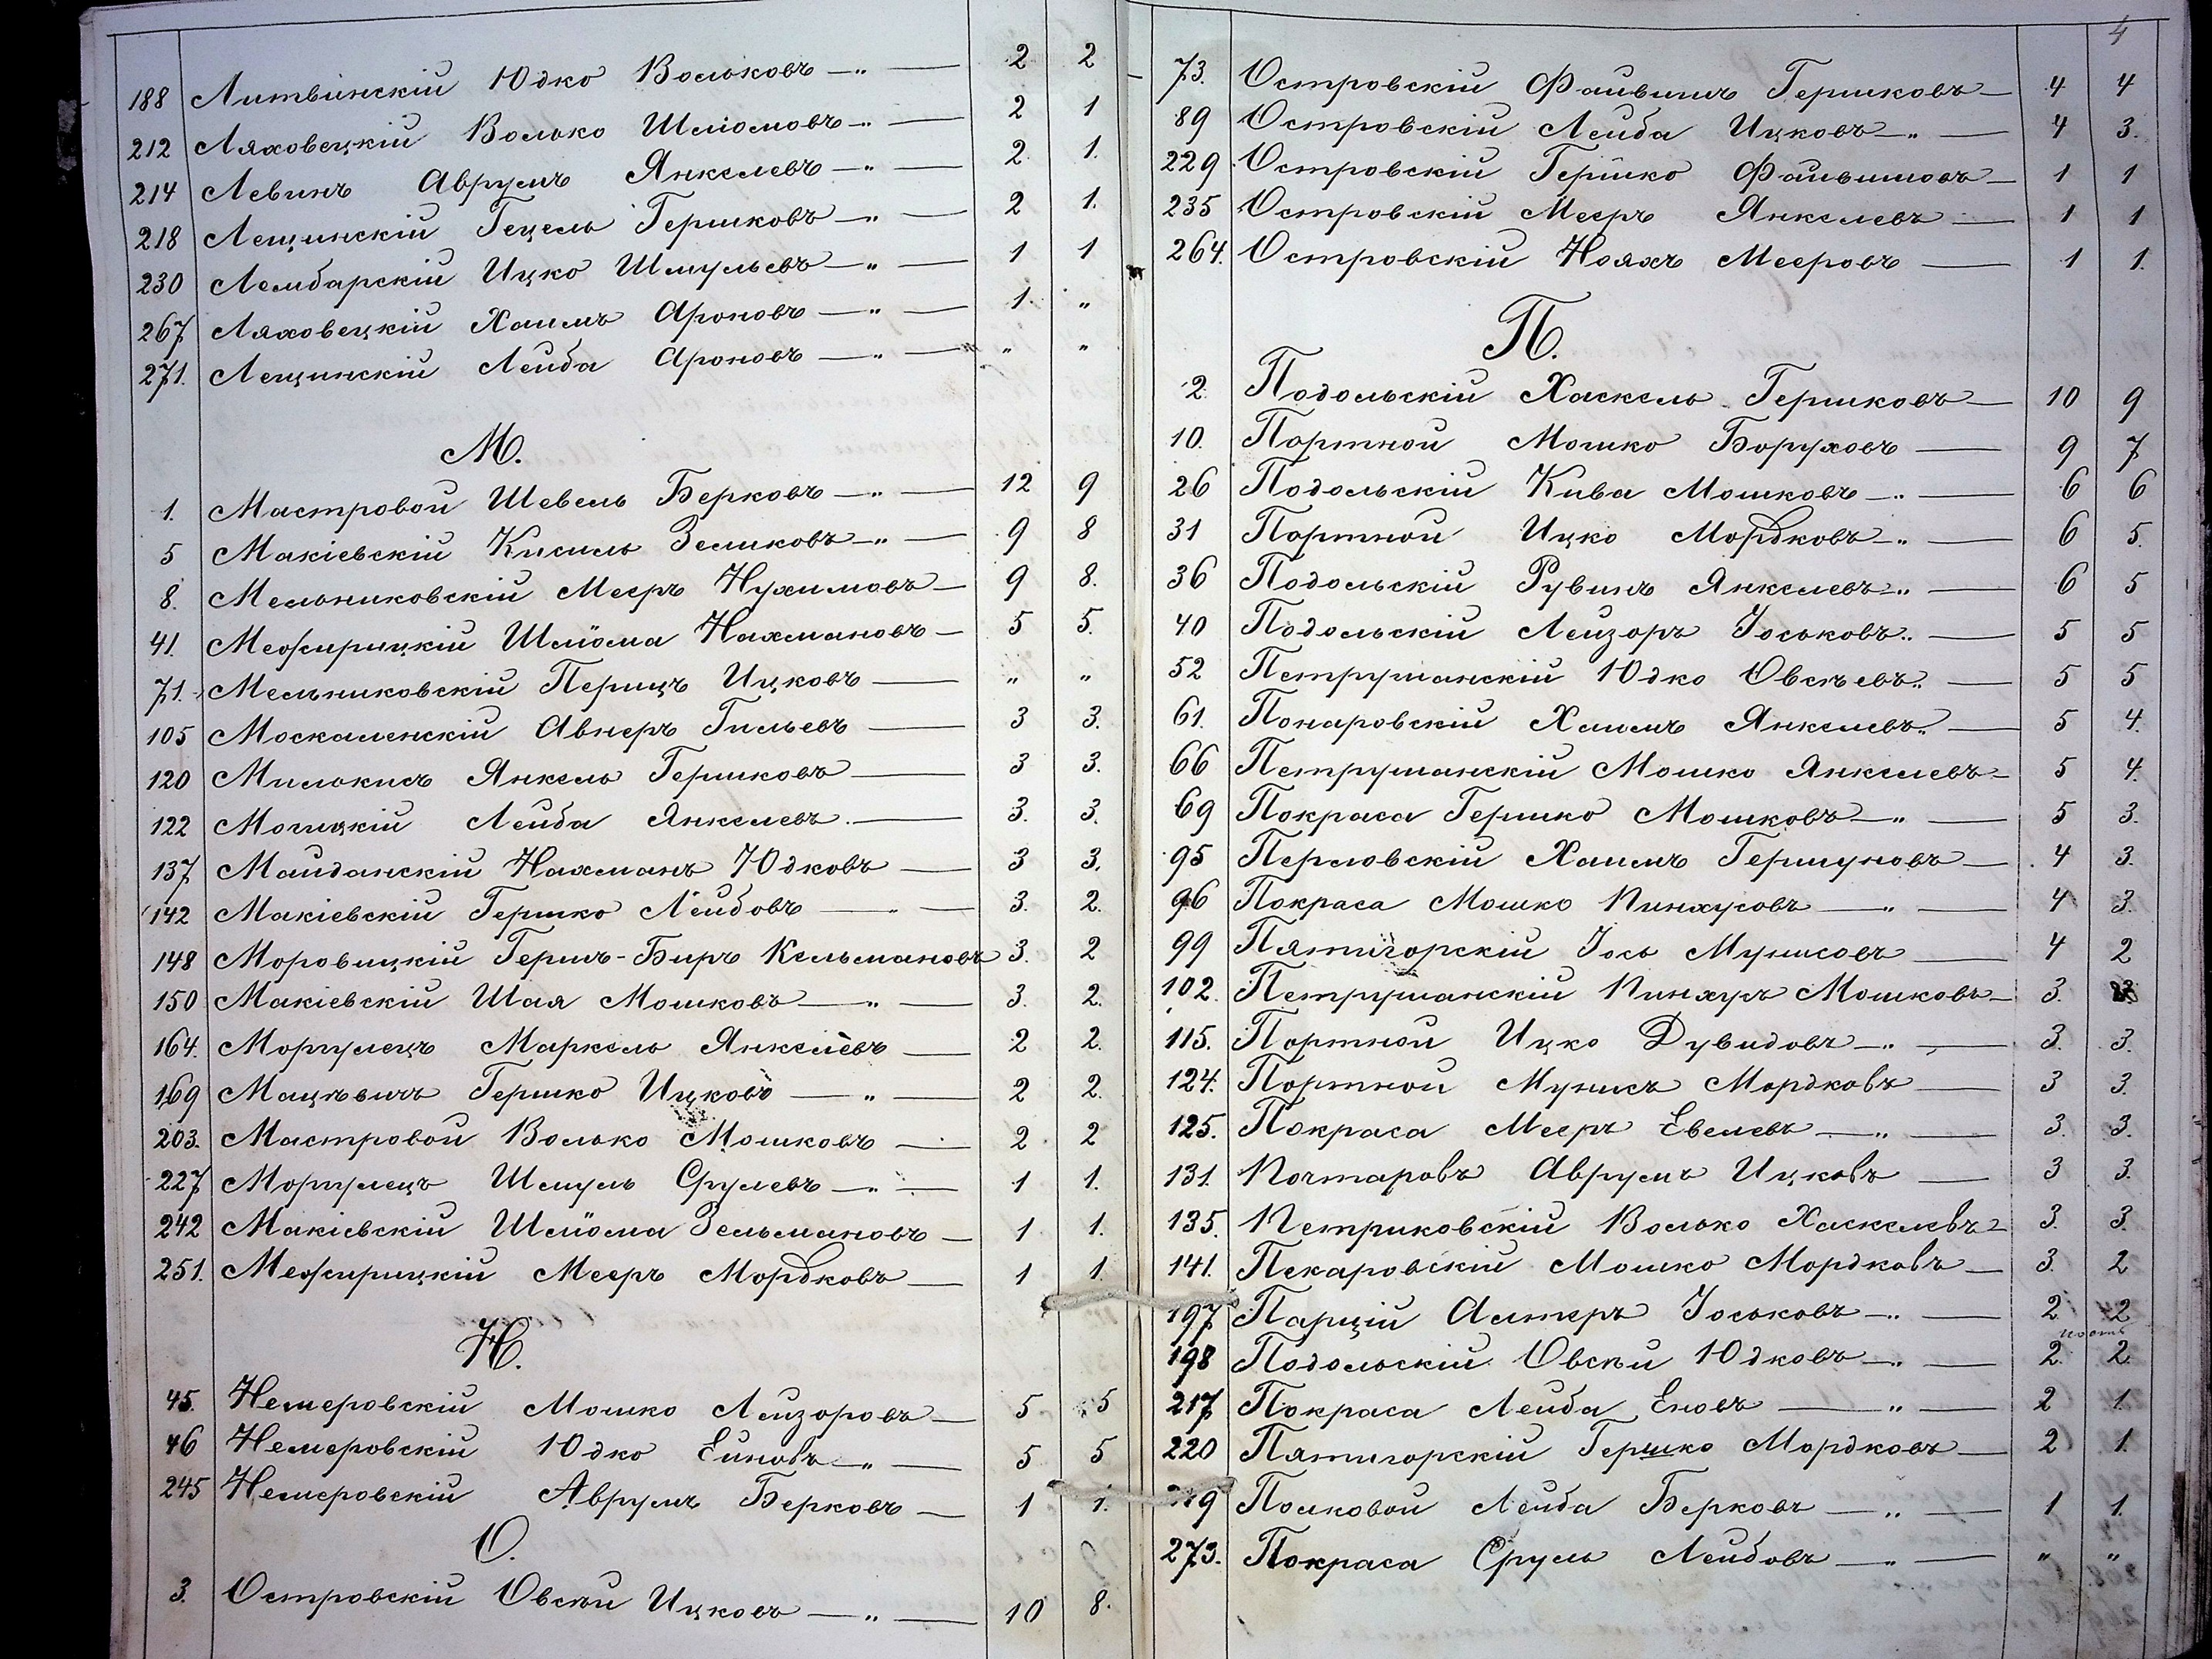 188 Литвинскій Юдко Вольковъ —"— 2 2
212 Ляховецкій Волько Шліомовъ —"— 2 1
214 Левинъ Аврумъ Янкелевъ —"— 2 1.
218 Лещинскій Гецель Гершковъ —"— 2 1.
230 Лембарскій Ицко Шмульевъ —"— 1 1
267 Ляховецкій Хаимъ Ароновъ —"— 1 "
271. Лещинскій Лейба Ароновъ —"— " "
М.
1. Мастровой Шевель Берковъ —"— 12 9
5 Макіевскій Кисиль Зеликовъ —"— 9 8
8. Мельниковскій Мееръ Нухимовъ — 9 8.
41. Межирицкій Шліома Нахмановъ — 5 5.
71. Мельниковскій Перицъ Ицковъ — " "
105 Москаленскій Авнеръ Гильевъ — 3 3.
120 Милокисъ Янкель Гершковъ — 3 3.
122 Лейба Янкелевъ — 3. 3.
137 Майданскій Нахманъ Юдковъ — 3 3.
142 Макіевскій Гершко Лейбовъ —"— 3. 2.
148 Моровицкій Гершъ-Биръ Кельмановъ 3. 2
150 Макіевскій Шая Мошковъ —"— 3. 2.
164. Моргулецъ Маркель Янкелевъ — 2 2.
169 Мацѣвичъ Гершко Ицковъ —"— 2 2.
203. Мастровой Волько Мошковъ — 2 2
227 Моргулецъ Шмуль Срулевъ —"— 1 1.
242 Макіевскій Шліома Зельмановъ — 1 1.
251. Межирицкій Мееръ Мордковъ — 1 1
Н.
45. Немеровскій Мошко Лейзоровъ — 5 5
46 Немеровскій Юдко Ейновъ —"— 5 5
245 Немеровскій Аврумъ Берковъ — 1 1.
О.
3. Островскій Овсѣй Ицковъ —"— 10 8.
4
73. Островскій Файвишъ Гершковъ — 4 4
89 Островскій Лейба Ицковъ —"— 4 3.
229 Островскій Гершко Файвишовъ — 1 1
235 Островскій Мееръ Янкелевъ — 1 1
264. Островскій Нояхъ Мееровъ — 1 1.
П.
2. Подольскій Хаскель Гершковъ — 10 9
10. Портной Мошко Боруховъ — 9 7
26 Подольскій Кива Мошковъ —"— 6 6
31 Портной Ицко Мордковъ —"— 6 5.
36 Подольскій Рувинъ Янкелевъ —"— 6 5
40 Подольскій Лейзоръ Іоськовъ "— 5 5
52 Петрушанскій Юдко Овсѣевъ "— 5 5
61. Понаровскій Хаимъ Янкелевъ "— 5 4.
66 Петрушанскій Мошко Янкелевъ — 5 4.
69 Покраса Гершко Мошковъ —"— 5 3.
95 Перловскій Хаимъ Гершуновъ — 4 3.
96 Покраса Мошко Пинхусовъ —"— 4 3.
99 Пятигорскій Іось Мунисовъ — 4 2
102. Петрушанскій Пинхусъ Мошковъ — 3. 3.
115. Портной Ицко Дувидовъ —"— 3. 3.
124. Портной Мунисъ Мордковъ — 3 3.
125. Покраса Мееръ Евелевъ —"— 3. 3.
131. Почтаровъ Аврумъ Ицковъ — 3 3.
135. Петриковскій Волько Хаскелевъ — 3. 3.
141. Пекаровскій Мошко Мордковъ — 3. 2
197 Парцій Алтеръ Іоськовъ —"— 2. 2
198 Подольскій Овсѣй Юдковъ —"— 2. 2.
217 Покраса Лейба Еновъ —"— 2 1.
220 Пятигорскій Гершко Мордковъ — 2 1.
Полковой Лейба Берковъ —"— 1 1.
273. Покраса Сруль Лейбовъ —"— " "